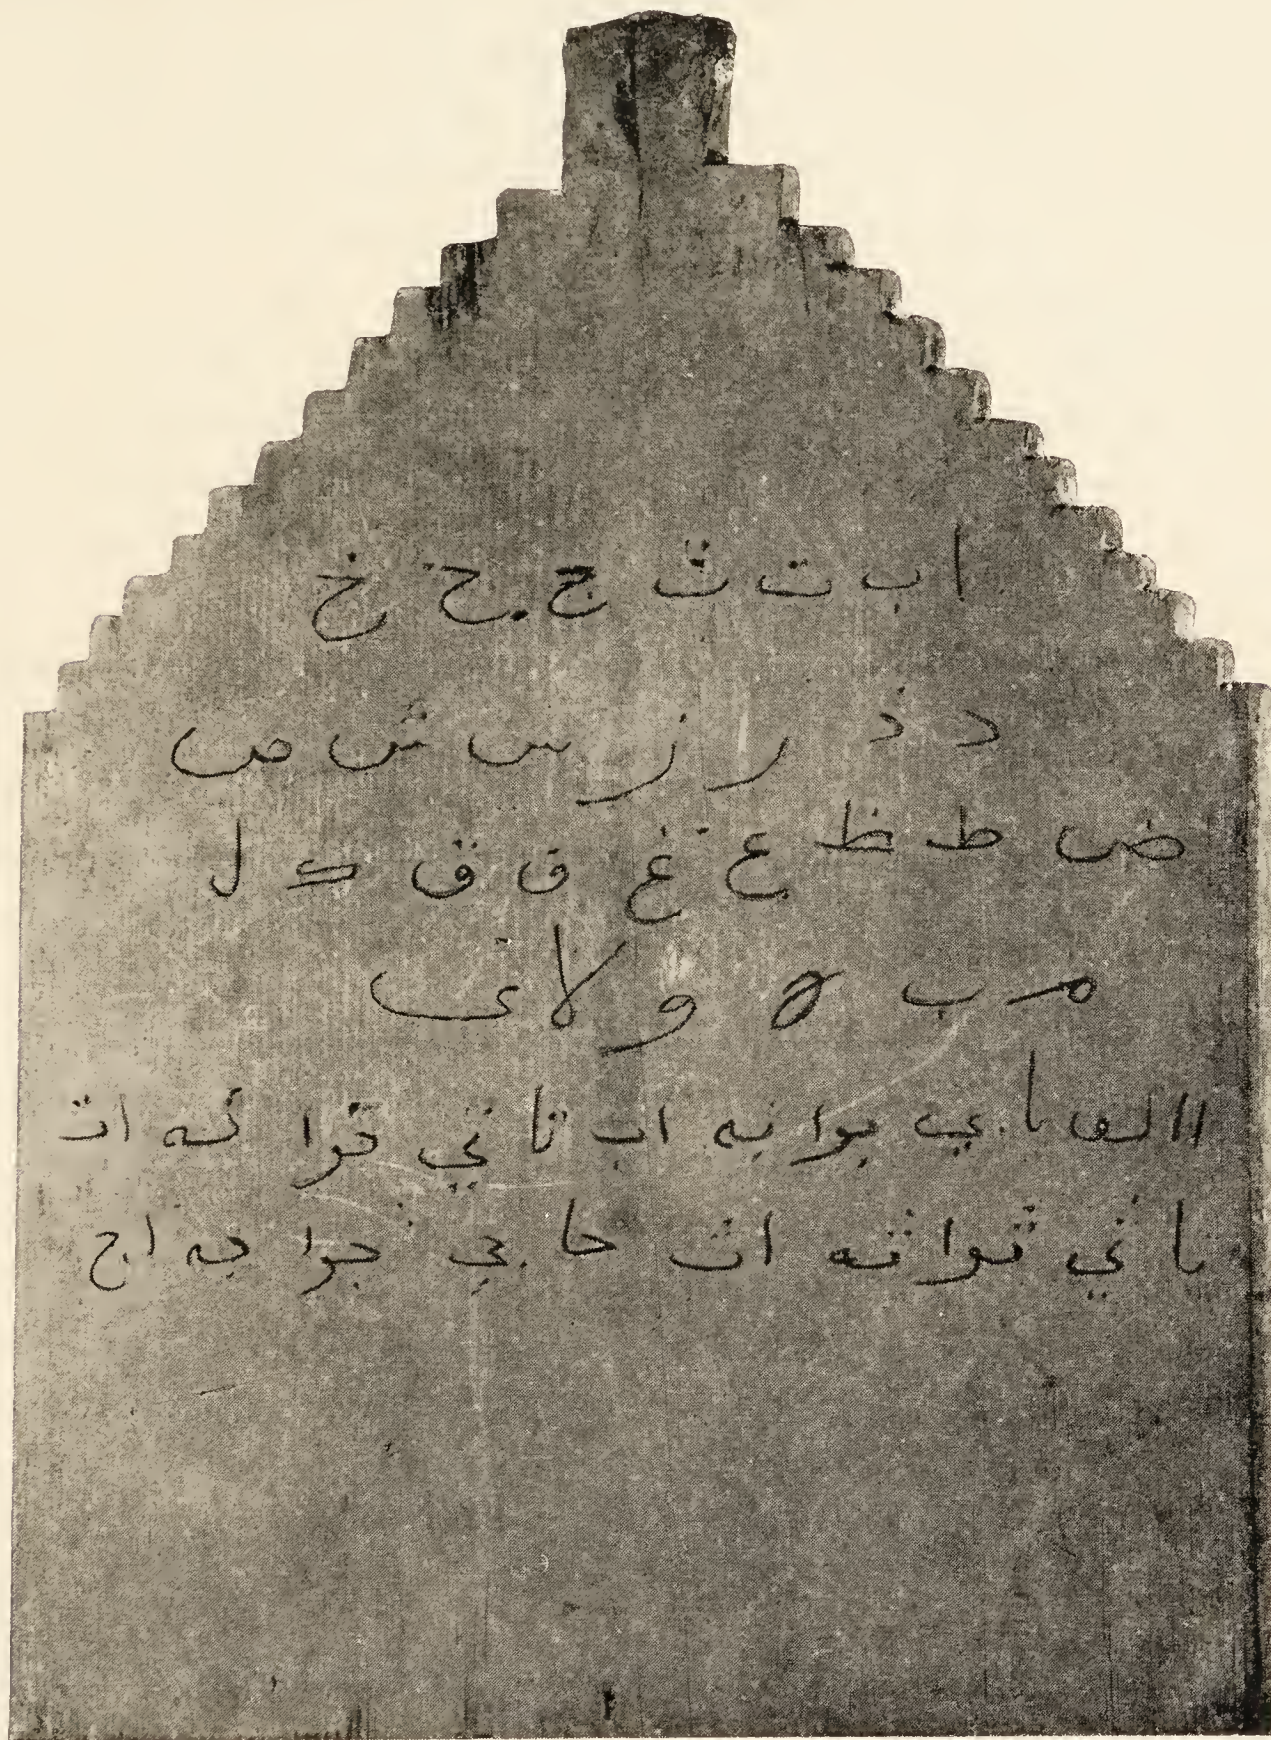 ا ب ت ث ج ح خ
د ذ ر ز س ش ص
ض ط ظ ع غ ف ق ك ل
م ب ه و لا ى
ا ا الف با بي بوا به اب تا تي توا ته ات
ثا ثي ثوا ثه اث جا جي جوا جه اج